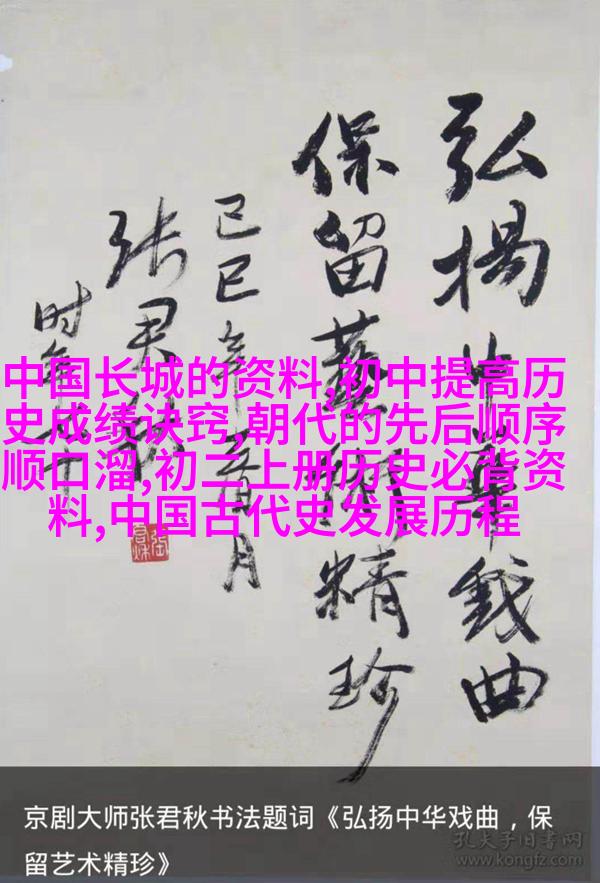 弘揚中華戲曲
保留藝術精珍
己巳年 月
张君秋
时年七十
中国长城的资料,初中提高历
史成绩诀窍,朝代的先后顺序
顺口溜,初二上册历史必背资
料,中国古代史发展历程
京剧大师张君秋书法题词《弘扬中华戏曲，保
留艺术精珍》
孔夫子旧书网
www.kongfz.com